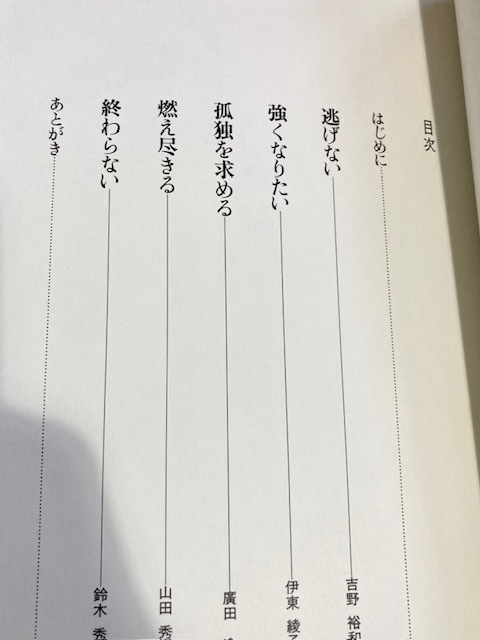 目次
はじめに
逃げない 吉野 裕和
強くなりたい 伊東 綾子
孤独を求める 廣田
燃え尽きる 山田 秀
終わらない 鈴木 秀
あとがき